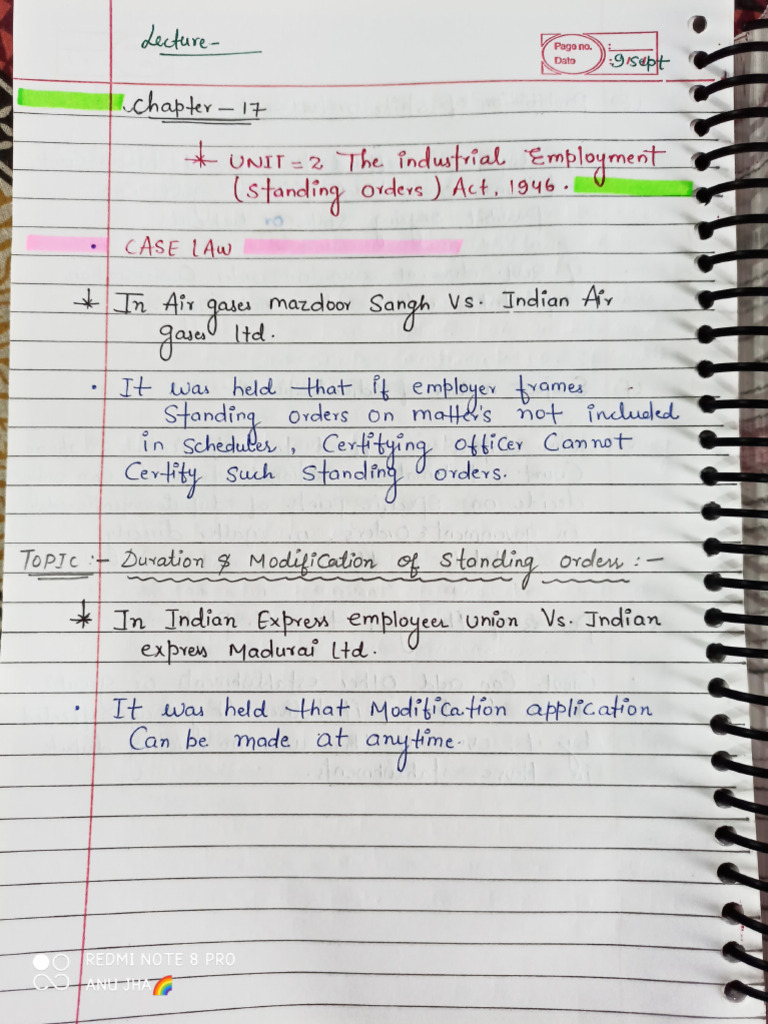 Lecture-
Page no. :
Date :9/sept
Chapter - 17
UNIT = 2 The industrial Employment
(standing orders) Act, 1946.
• CASE LAW
In Air gases mazdoor Sangh Vs. Indian Air
gases ltd.
• It was held that if employer frames
Standing orders on matter's not included
in schedules, Certifying officer Cannot
Certify Such Standing orders.
TOPIC :- Duration & Modification of Standing orders :-
In Indian Express employees union Vs. Indian
express Madurai Ltd.
• It was held that Modification application
Can be made at anytime.
REDMI NOTE 8 PRO
ANU JHA🌈